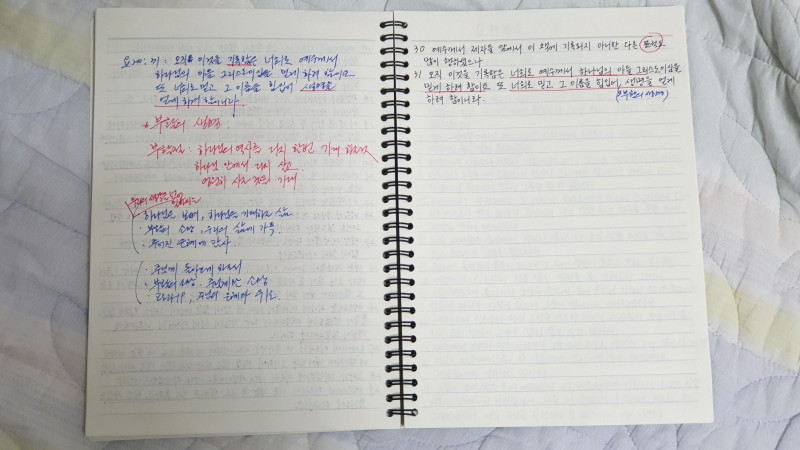 요20:31: 오직 이것을 기록함은 너희로 예수께서
하나님의 아들 그리스도이심을 믿게 하려 함이요
또 너희로 믿고 그 이름을 힘입어 생명을
얻게 하려 함이니라
* 부활의 생명
부활신앙: 하나님의 역사를 다시 한번 기대하는것
하나님 안에서 다시 살고
영원히 사는 것을 기대
부활의 생명으로
하나님을 보며, 하나님을 기대하고 삶
· 부활의 소망, 우리의 삶에 가득
· 주어진 은혜에 감사
· 주님께 돌아오게 하소서
· 부활의 소망. 주님께만 소망
· 코로나19, 주님의 은혜와 위로
30 예수께서 제자들 앞에서 이 책에 기록되지 아니한 다른 표적도
많이 행하셨으나
31 오직 이것을 기록함은 너희로 예수께서 하나님의 아들 그리스도이심을
믿게 하려 함이요 또 너희로 믿고 그 이름을 힘입어, 생명을 얻게
하려 함이니라.
(부활의 생명)